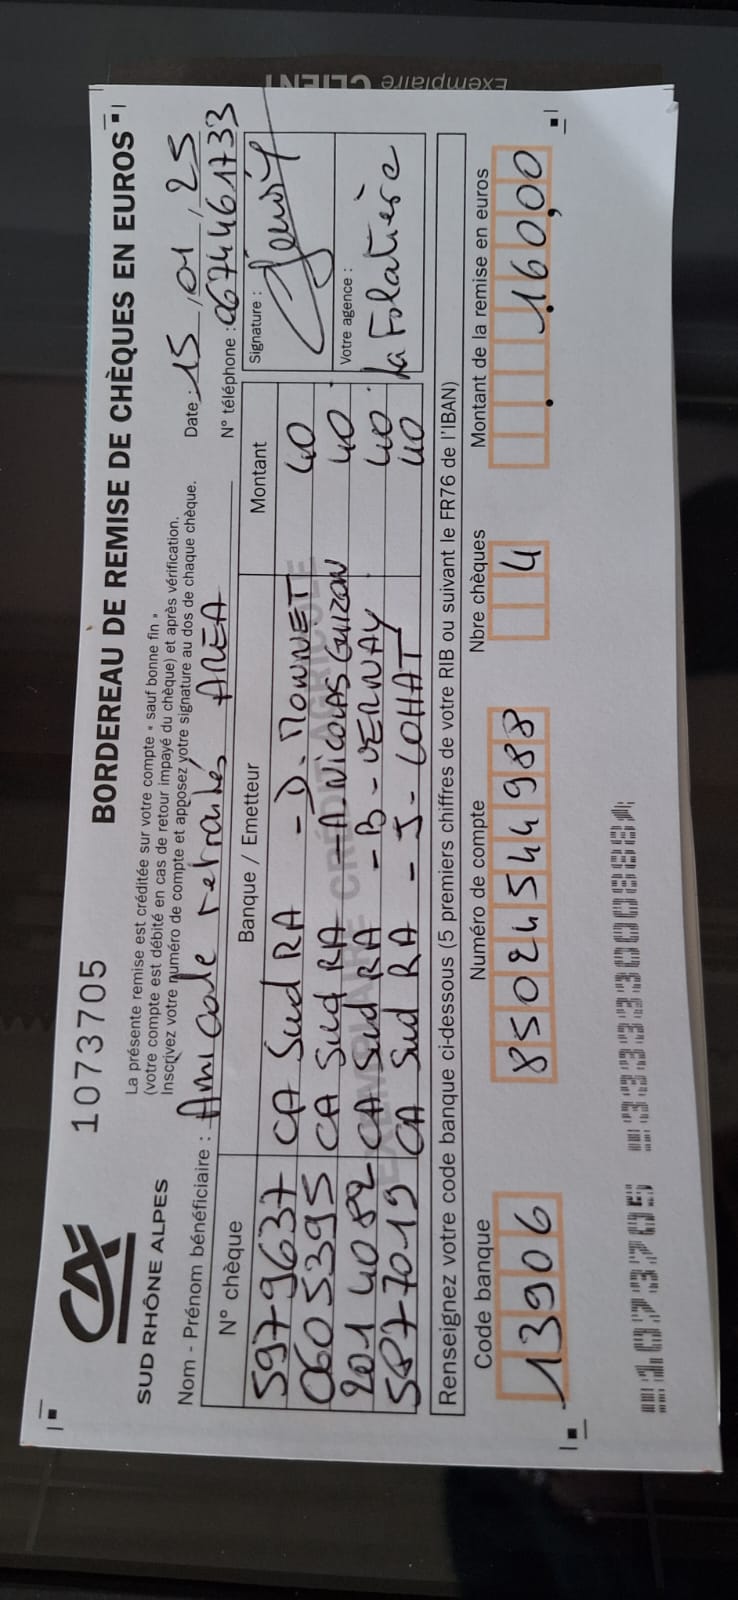 Exemplaire CLIENT
1073705 BORDEREAU DE REMISE DE CHÈQUES EN EUROS
CA
SUD RHÔNE ALPES
La présente remise est créditée sur votre compte « sauf bonne fin »
(votre compte est débité en cas de retour impayé du chèque) et après vérification.
Inscrivez votre numéro de compte et apposez votre signature au dos de chaque chèque.
Date : 15 01 25
Nom - Prénom bénéficiaire : Amicale retraités AREA
N° téléphone : 0674461733
N° chèque Banque / Emetteur Montant
5979637 CA Sud RA - D. MONNET 40
0605395 CA Sud RA - A. NICOLAS GUIZON 40
2014082 CA Sud RA - B - VERNAY 40
5877019 CA Sud RA - J - LOHAT 40
Signature :
Votre agence :
La Folatière
EXEMPLAIRE CRÉDIT AGRICOLE
Renseignez votre code banque ci-dessous (5 premiers chiffres de votre RIB ou suivant le FR76 de l'IBAN)
Code banque Numéro de compte Nbre chèques Montant de la remise en euros
13906 85024544988 4 160,00